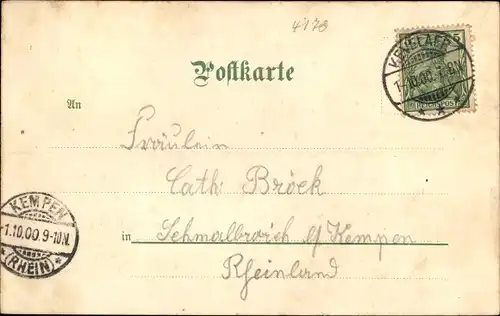 4178
KEVELAER
1.10.00.7-8N.
5
REICHSPOST
Postkarte
An
Fräulein
Cath. Bröck
in Schmalbroich b/ Kempen
Rheinland
KEMPEN
1.10.00.9-10N.
*(RHEIN)*